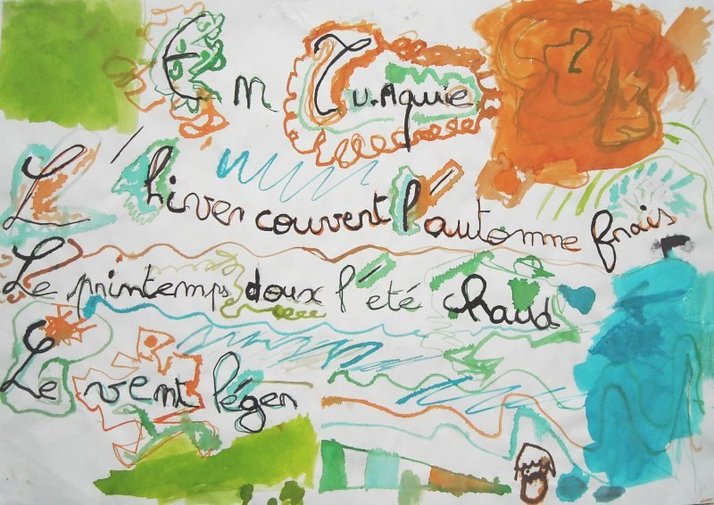 En Turquie
L'hiver couvent l'automne frais
Le printemps doux l'été chaud
Le vent léger